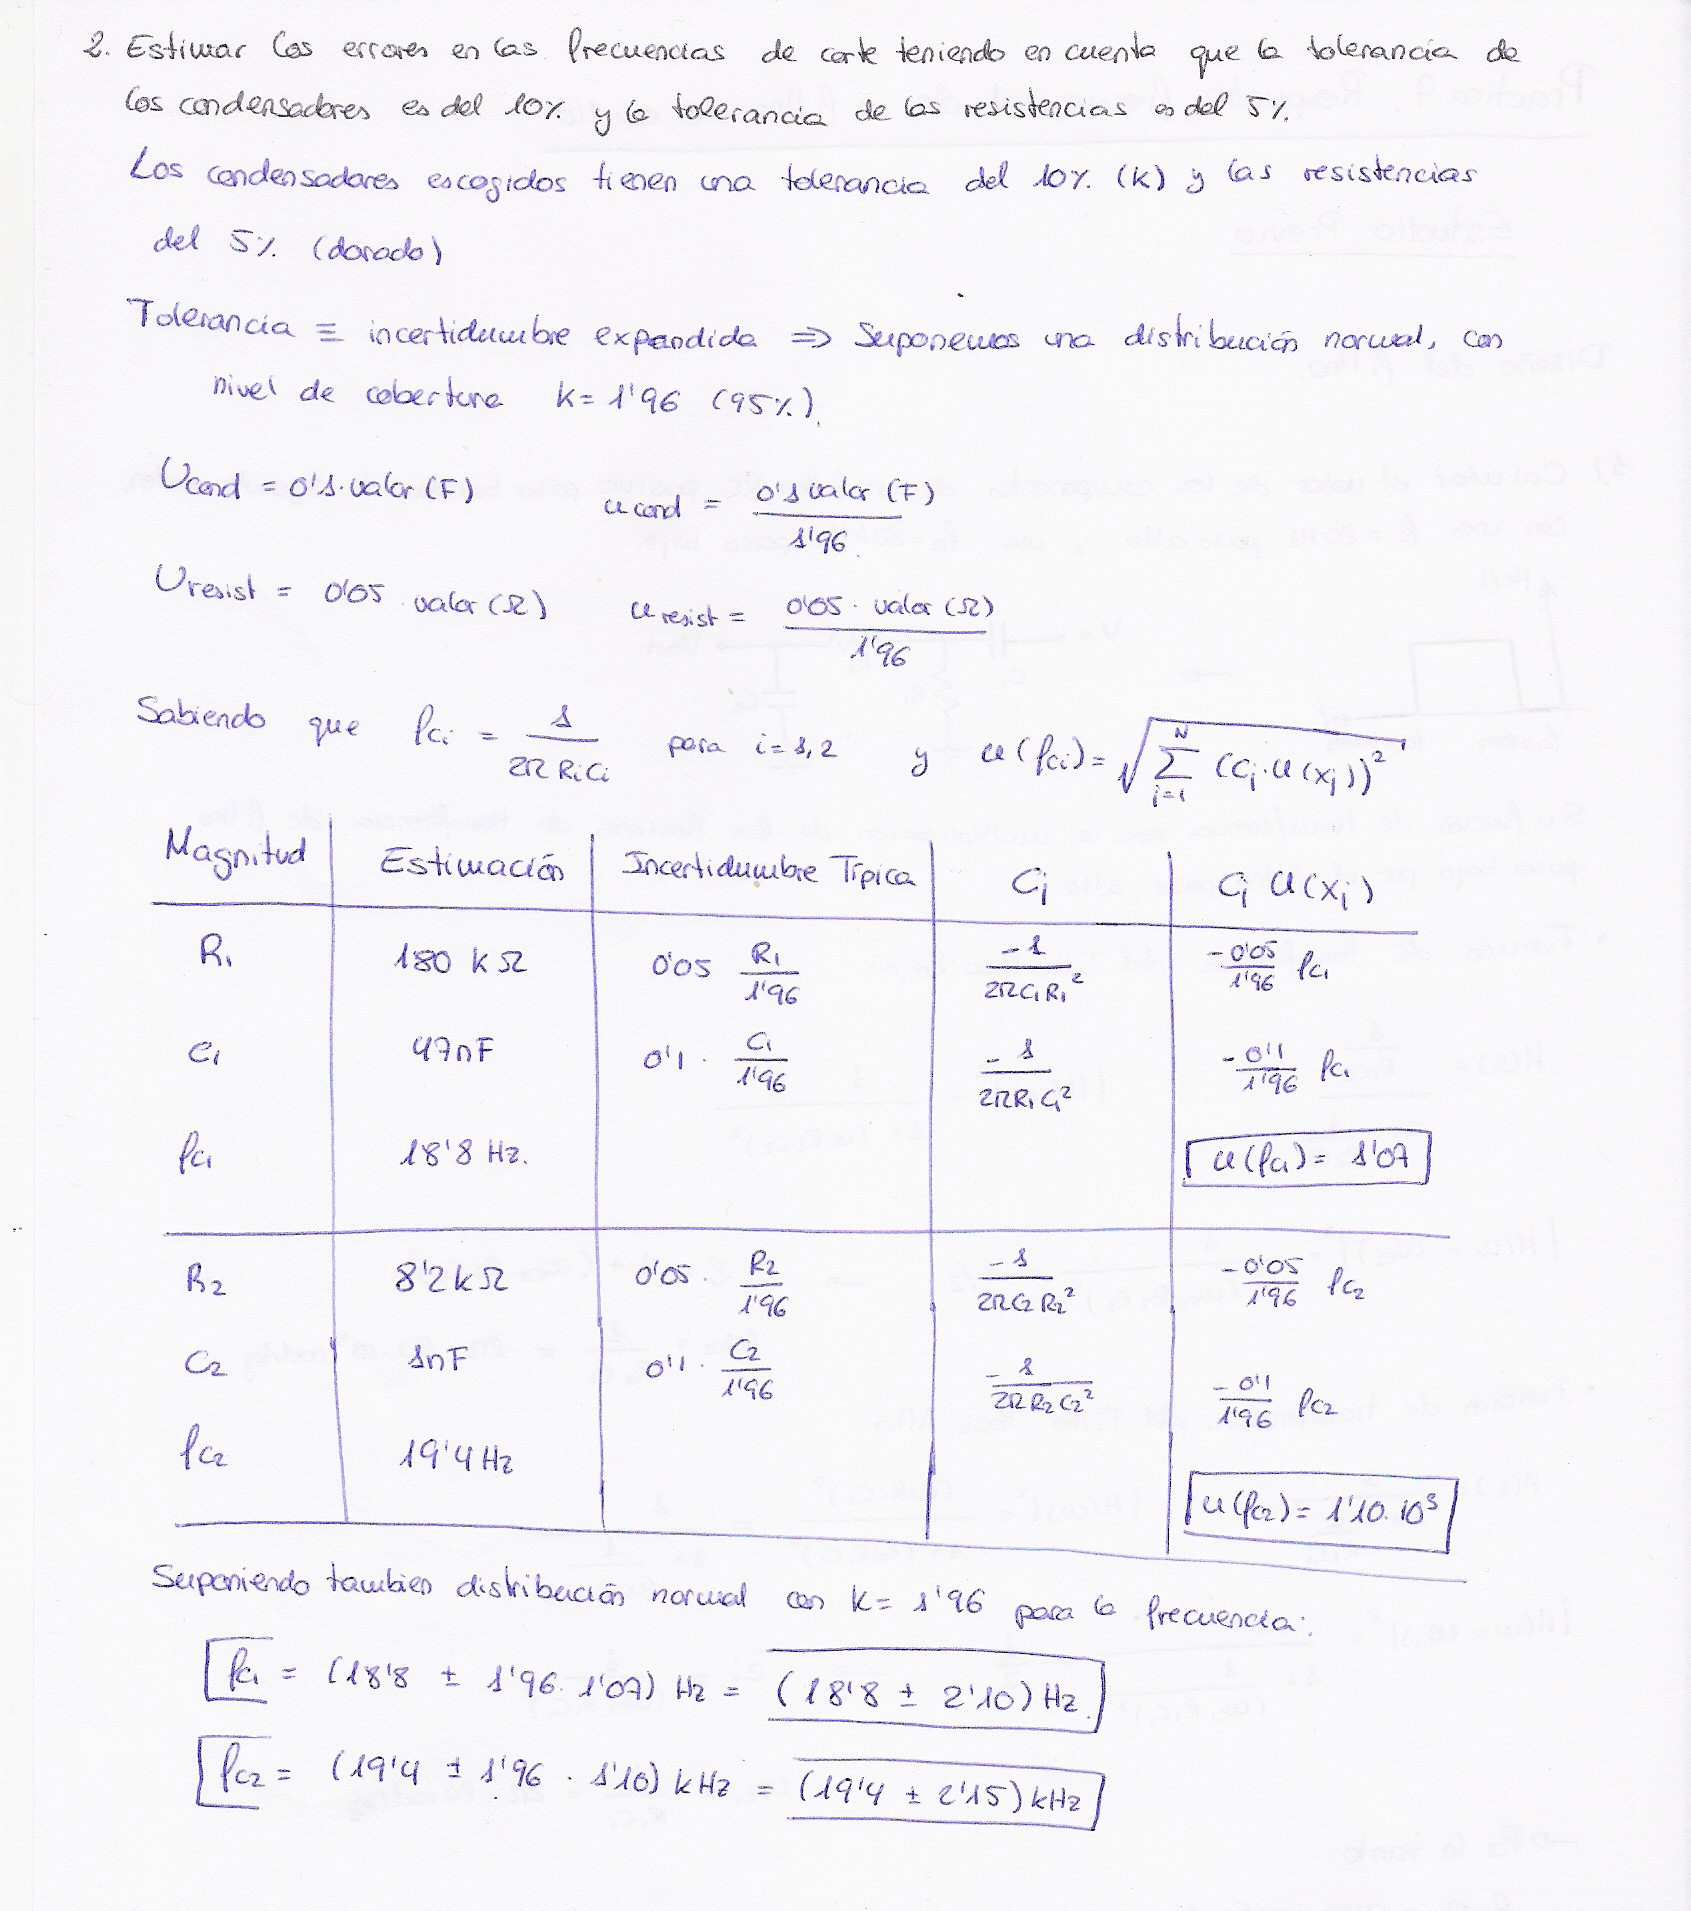 2. Estimar los errores en las frecuencias de corte teniendo en cuenta que la tolerancia de
los condensadores es del 10% y la tolerancia de las resistencias es del 5%.
Los condensadores escogidos tienen una tolerancia del 10% (K) y las resistencias
del 5% (dorado)
Tolerancia ≡ incertidumbre expandida ⇒ Suponemos una distribución normal, con
nivel de cobertura k=1'96 (95%).
Ucond = 0'1·valor (F) ucond = 0'1 valor (F) / 1'96
Uresist = 0'05 · valor (Ω) uresist = 0'05 · valor (Ω) / 1'96
Sabiendo que fci = 1 / 2π RiCi para i=1,2 y u(fci) = √ N Σ j=1 (Cj·u(xj))²
Magnitud Estimación Incertidumbre Típica Cj Cj u(xj)
R1 180 kΩ 0'05 R1/1'96 -1/2πC1R1² -0'05/1'96 fc1
C1 47nF 0'1 · C1/1'96 -1/2πR1C1² -0'1/1'96 fc1
fc1 18'8 Hz. u(fc1) = 1'07
R2 8'2kΩ 0'05 · R2/1'96 -1/2πC2R2² -0'05/1'96 fc2
C2 1nF 0'1 · C2/1'96 -1/2πR2C2² -0'1/1'96 fc2
fc2 19'4Hz u(fc2) = 1'10·10³
Suponiendo tambien distribución normal con k= 1'96 para la frecuencia:
fc1 = (18'8 ± 1'96·1'07) Hz = (18'8 ± 2'10) Hz
fc2 = (19'4 ± 1'96 · 1'10) kHz = (19'4 ± 2'15) kHz